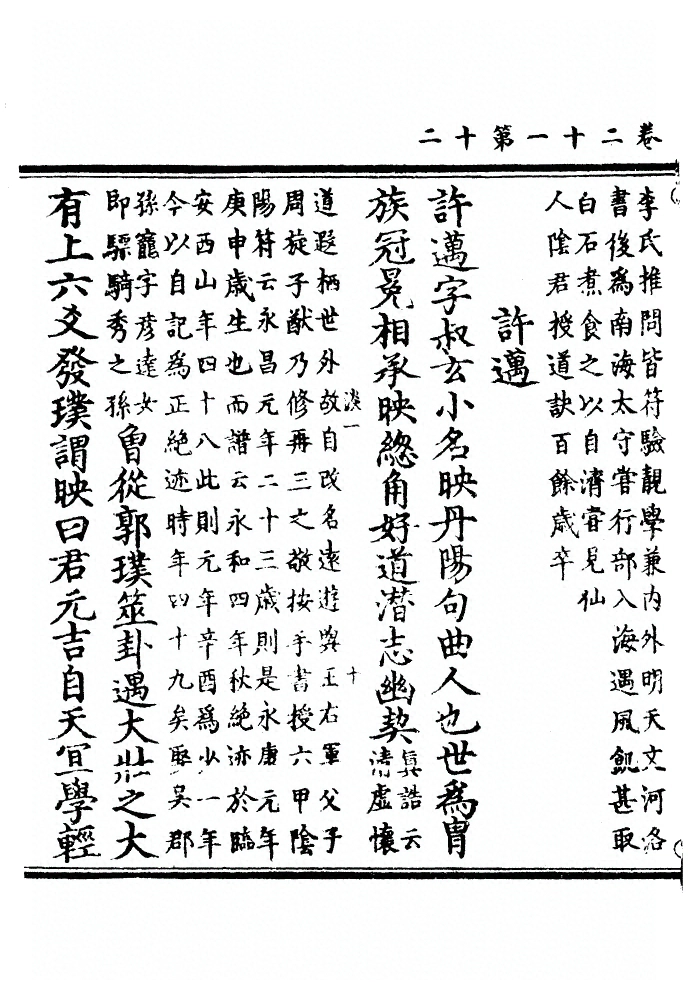 卷二十一第十二
李氏推問皆符驗靚學兼内外明天文河洛
書後爲南海太守嘗行部入海遇風飢甚取
白石煮食之以自濟甞見仙
人陰君授道訣百餘歲卒
許邁
許邁字叔玄小名映丹陽句曲人也世爲胄
族冠冕相承映總角好道潛志幽契真誥云清虛懷
淡一
十
道遐栖世外故自改名遠遊與王右軍父子
周旋子猷乃修再三之敬按手書授六甲陰
陽符云永昌元年二十三歲則是永康元年
庚申歲生也而譜云永和四年秋絶迹於臨
安西山年四十八此則元年辛酉爲少一年
今以自記爲正絶迹時年四十九矣娶吳郡
孫籠字彦達女即驃騎秀之孫曾從郭璞筮卦遇大壯之大
有上六爻發璞謂映曰君元吉自天宜學輕